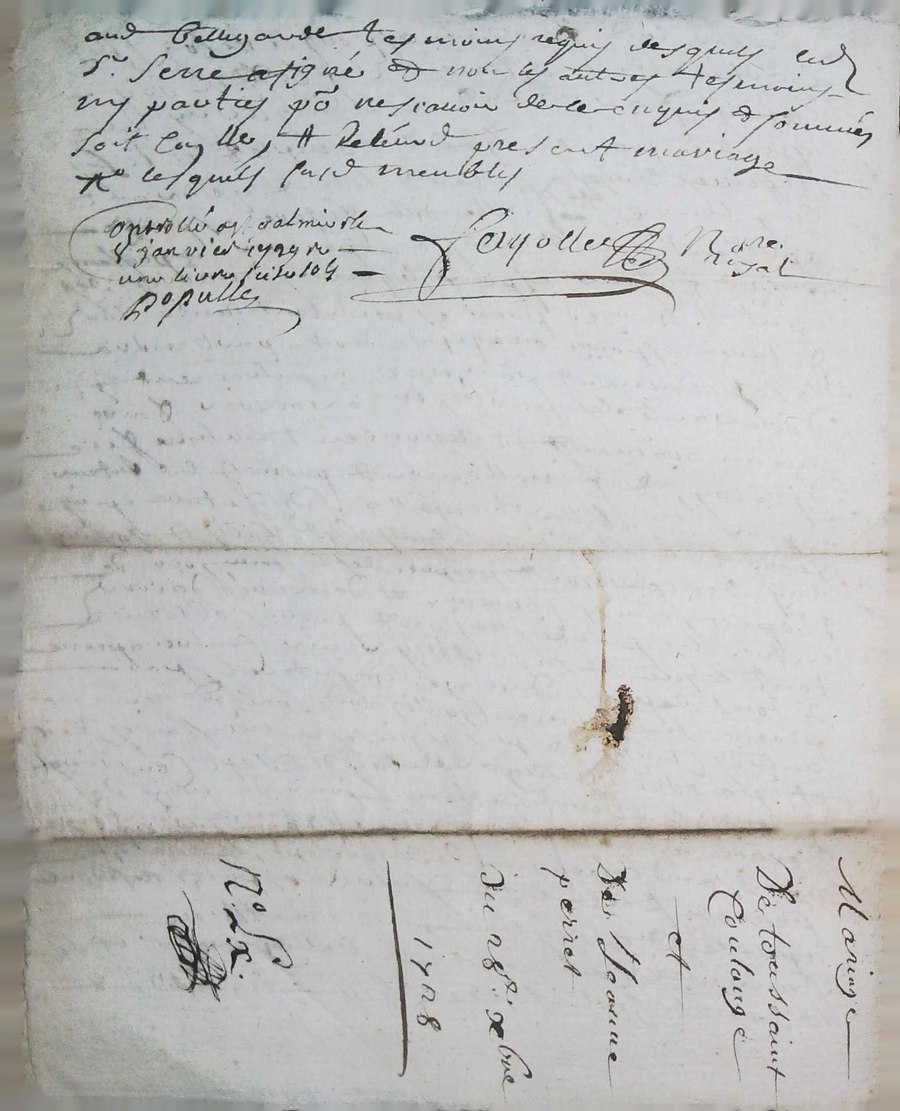 aud Bellegarde tesmoins requis desquels led
Sr. Serre a signé & non les autres tesmoins
ny parties po ne scavoir de ce enquis & sommés
soit
present mariage
lesquels meubles
Controllé a St galmier le
8 janvier 1729 re
une livre
Populle
Fayolle Nore. Royal
Mariage
De toussaint
Coulange
et
De Jeanne
perret
Du 28e. xbre
1728
No. Lx.